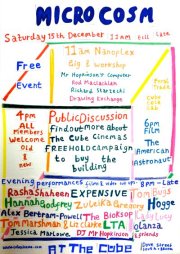 MICROCOSM
Saturday 15th December 11am till Late
Free Event
11am Nanoplex
Big 8 workshop
Mr Hopkinson's Computer
Rod Maclachlan
Richard Starzecki
Drawing Exchange
4pm
All Members Welcome
&
new
Public Discussion
Find out more about
The Cube Cinemas
FREEHOLD CAMPAIGN
to buy the building
6pm
Film
The American Astronaut
Evening performances films & video
8pm - Late
Rasha Shaheen EXPENSIVE Tom Bugs
Hannah Godfrey Zuleika Gregory Hogge
Alex Bertram-Powell The Bioksop Lady Lucy
Tom Marshman & Liz Clarke LTA Jolanda
Jessica Marlowe DJ Mr Hopkinson Ferenc
AT THE CUBE
Dove Street